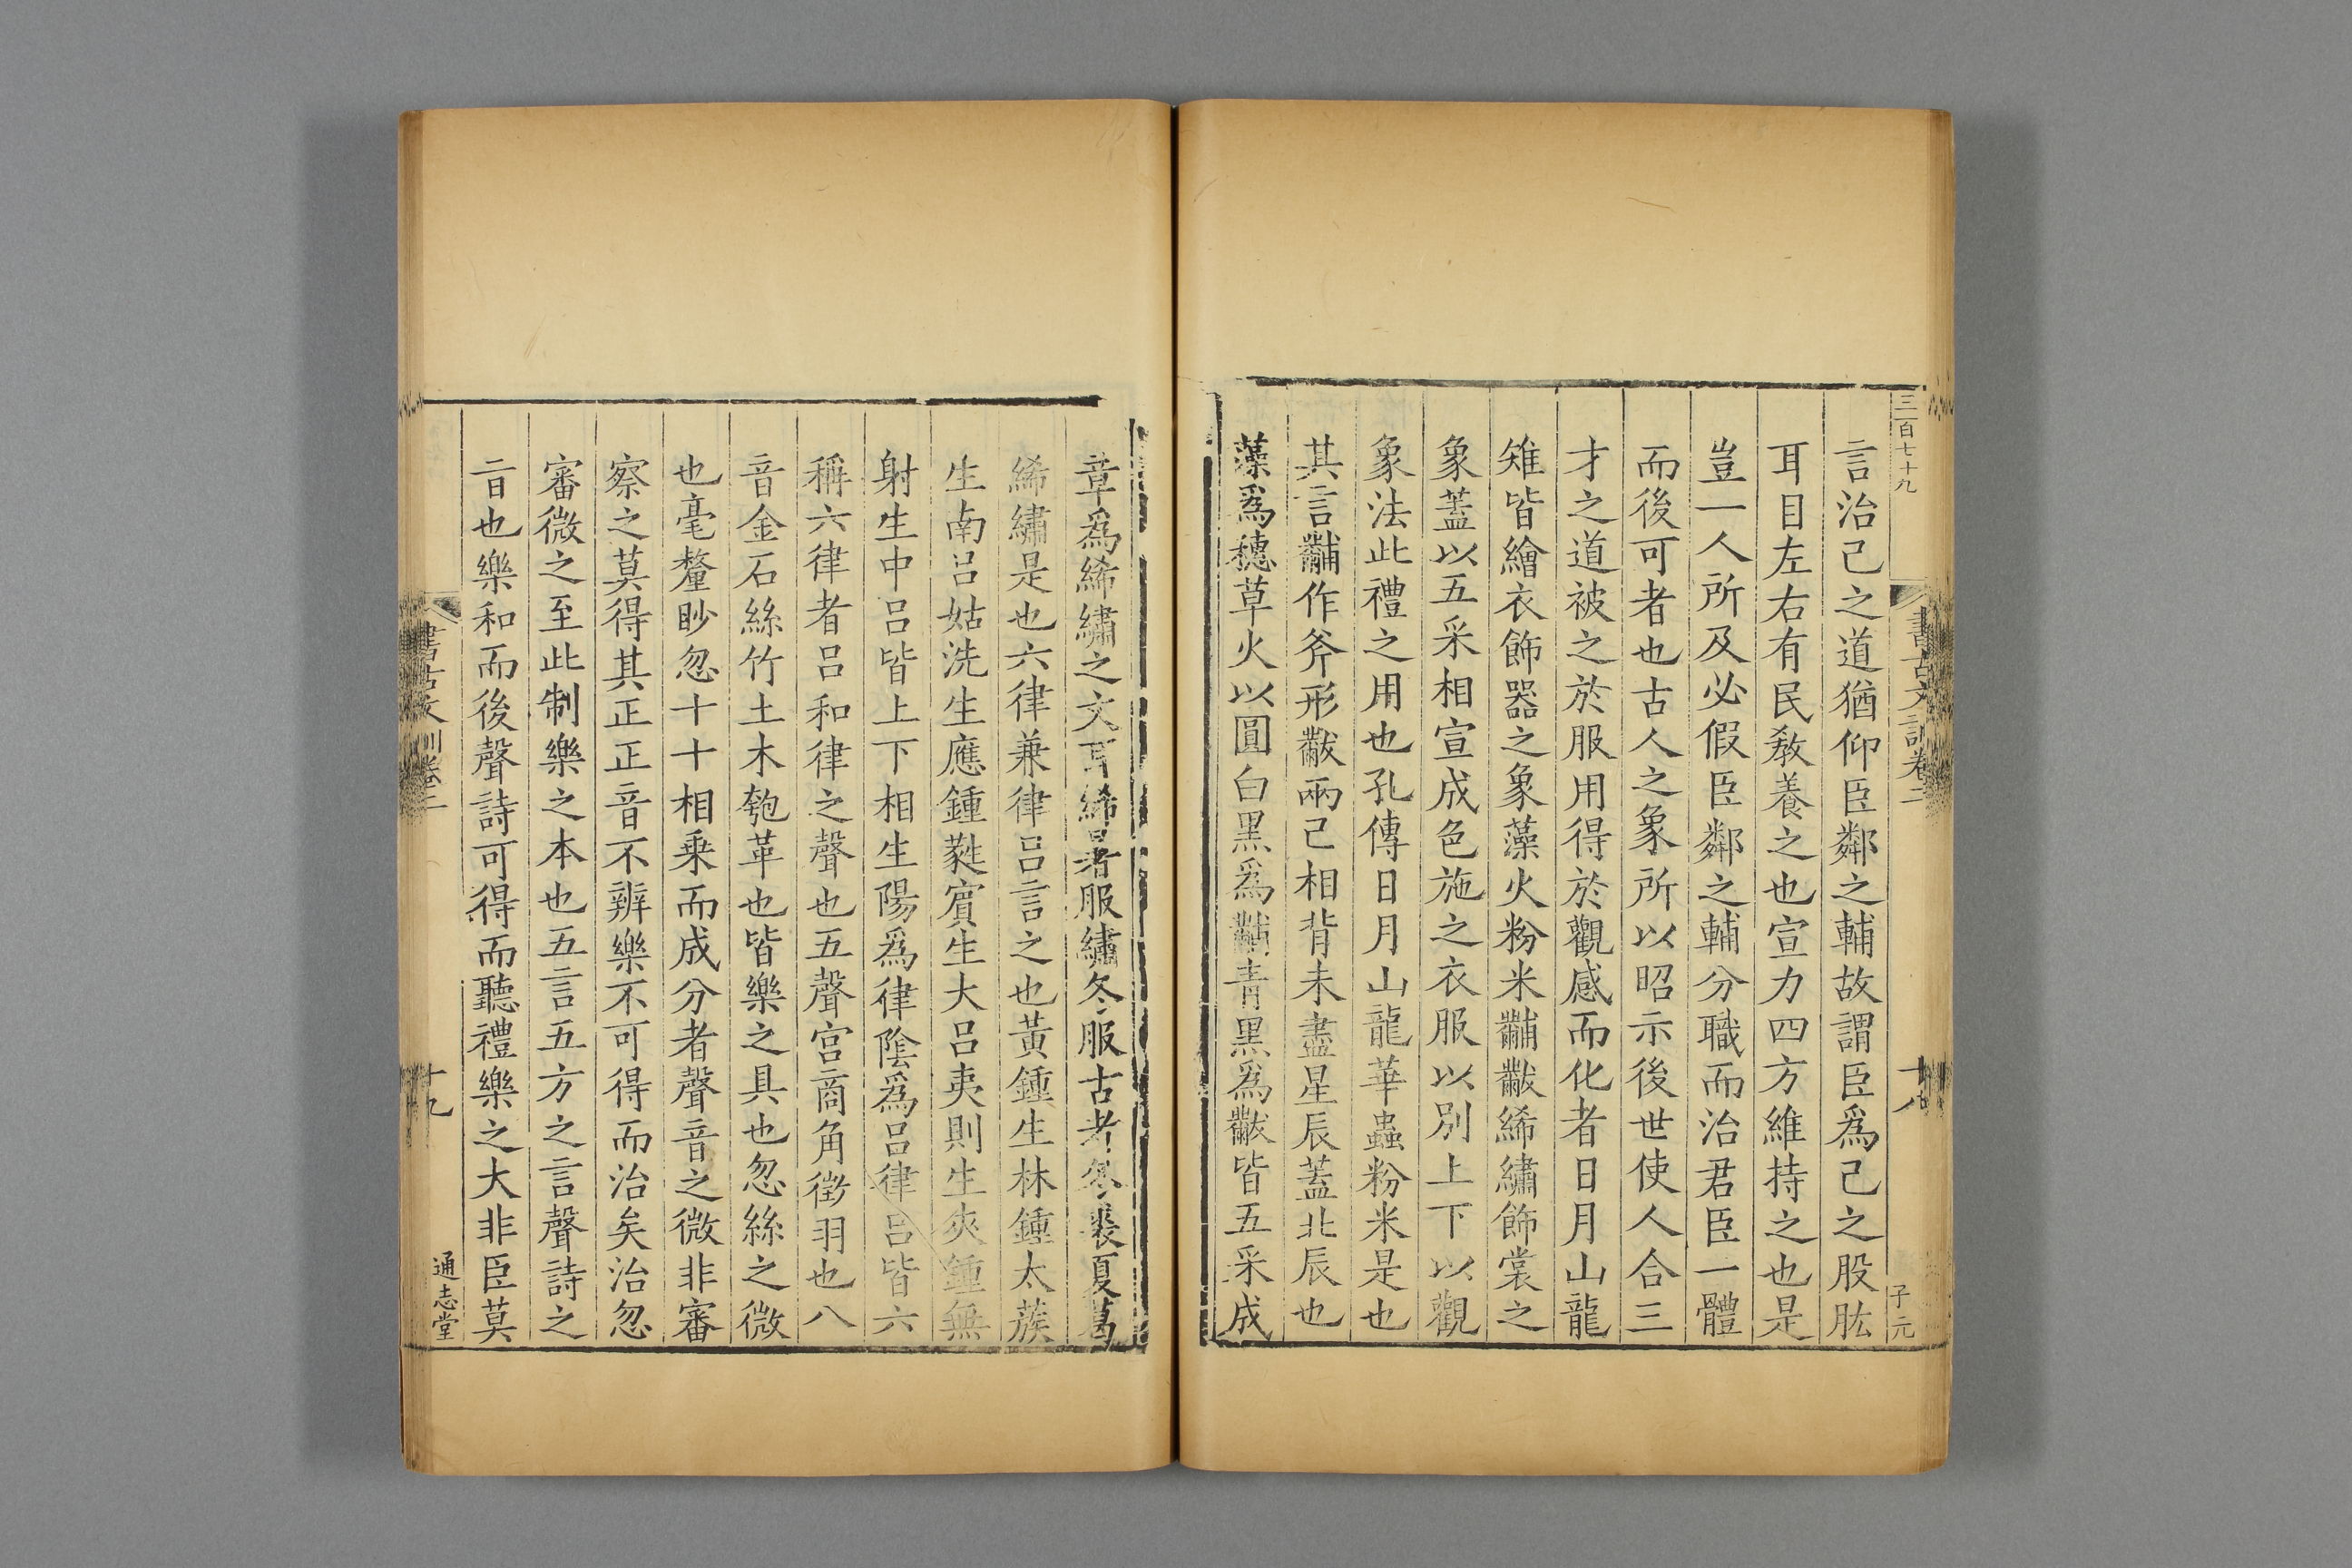 三百七十九
書古文訓卷二
十八
子元
言治己之道猶仰臣鄰之輔故謂臣爲己之股肱
耳目左右有民敎養之也宣力四方維持之也是
豈一人所及必假臣鄰之輔分職而治君臣一體
而後可者也古人之象所以昭示後世使人合三
才之道被之於服用得於觀感而化者日月山龍
雉皆繪衣飾器之象藻火粉米黼黻絺繡飾裳之
象蓋以五采相宣成色施之衣服以別上下以觀
象法此禮之用也孔傳日月山龍華蟲粉米是也
其言黼作斧形黻兩己相背未盡星辰蓋北辰也
藻爲穗草火以圓白黑爲黼青黑爲黻皆五采成
章爲絺繡之文耳絺暑服繡冬服古者冬裘夏葛
絺繡是也六律兼律呂言之也黃鍾生林鍾太蔟
生南呂姑洗生應鍾蕤賓生大呂夷則生夾鍾無
射生中呂皆上下相生陽爲律陰爲呂律呂皆六
稱六律者呂和律之聲也五聲宮商角徵羽也八
音金石絲竹土木匏革也皆樂之具也忽絲之微
也毫釐眇忽十十相乗而成分者聲音之微非審
察之莫得其正正音不辨樂不可得而治矣治忽
審微之至此制樂之本也五言五方之言聲詩之
音也樂和而後聲詩可得而聽禮樂之大非臣莫
書古文訓卷二
十九
通志堂